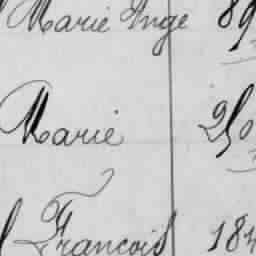 Marie Ange 89
Marie 250
François 184